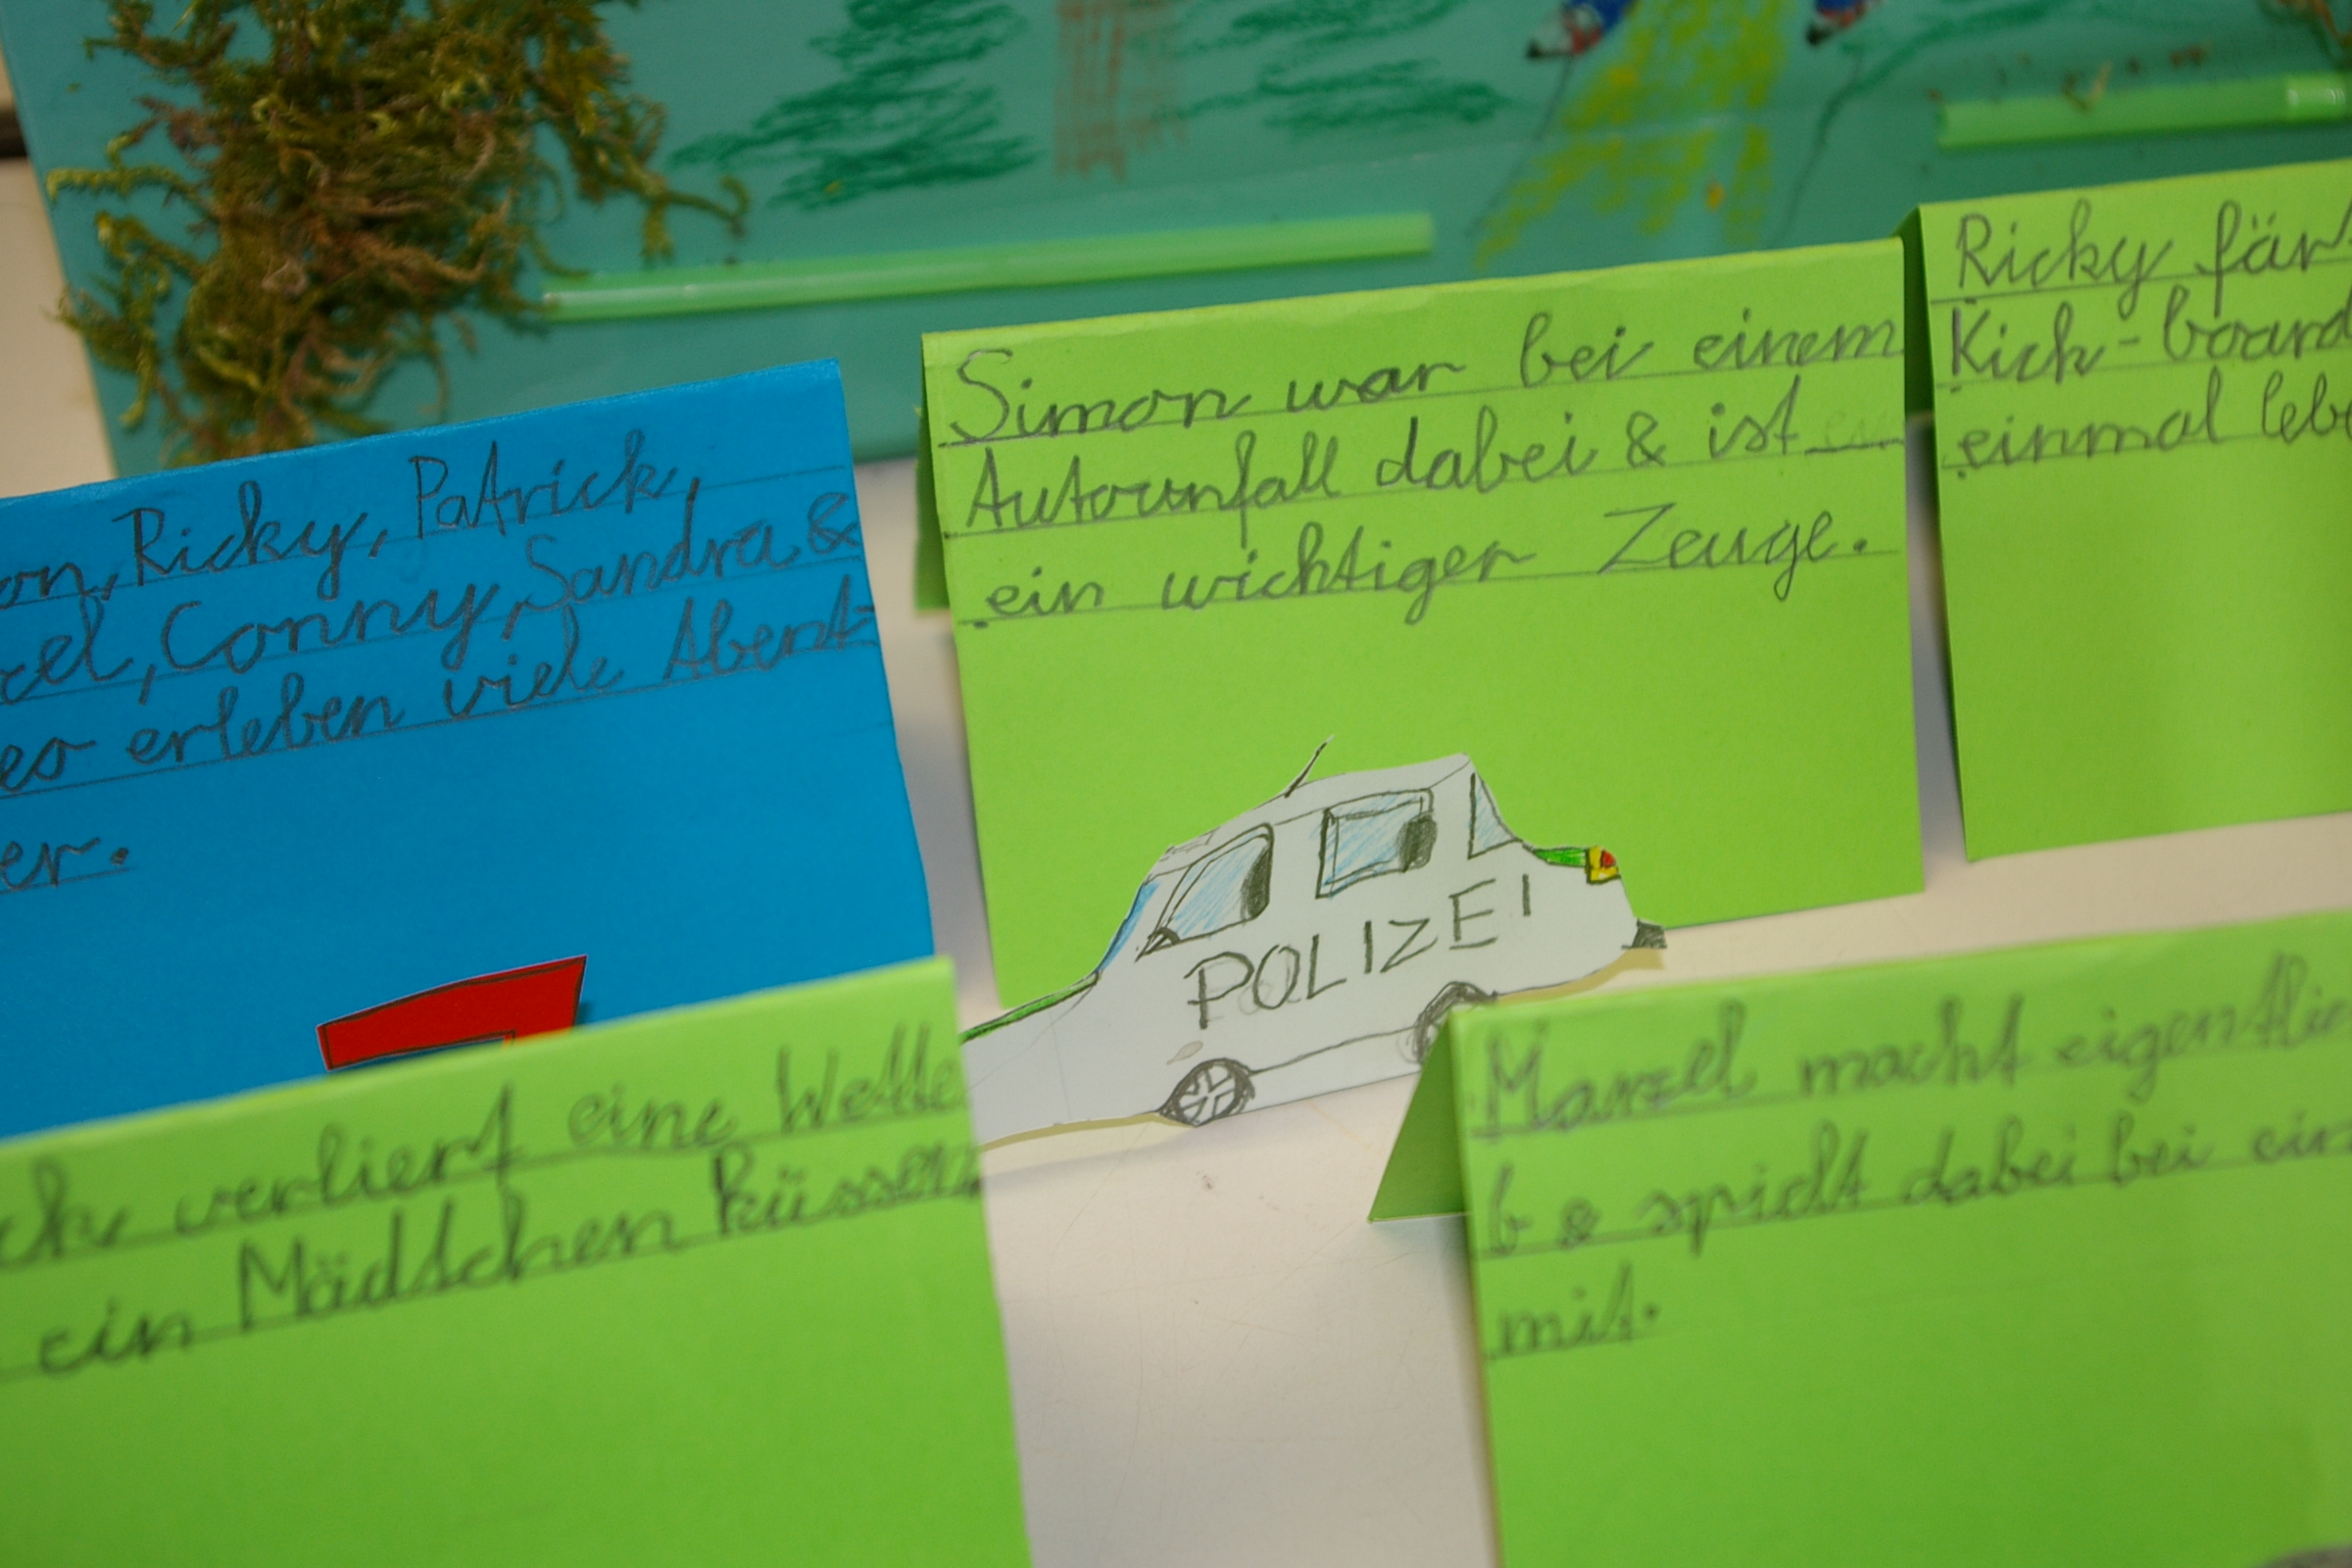 on, Ricky, Patrick,
cel, Conny, Sandra &
eo erleben viele Abent-
er.
Simon war bei einem
Autounfall dabei & ist
ein wichtiger Zeuge.
Ricky fär
Kick-board
einmal leb
POLIZEI
ck verliert eine Wette
ein Mädchen küssen
Marzel macht eigentlic
b & spielt dabei bei ein
mit.